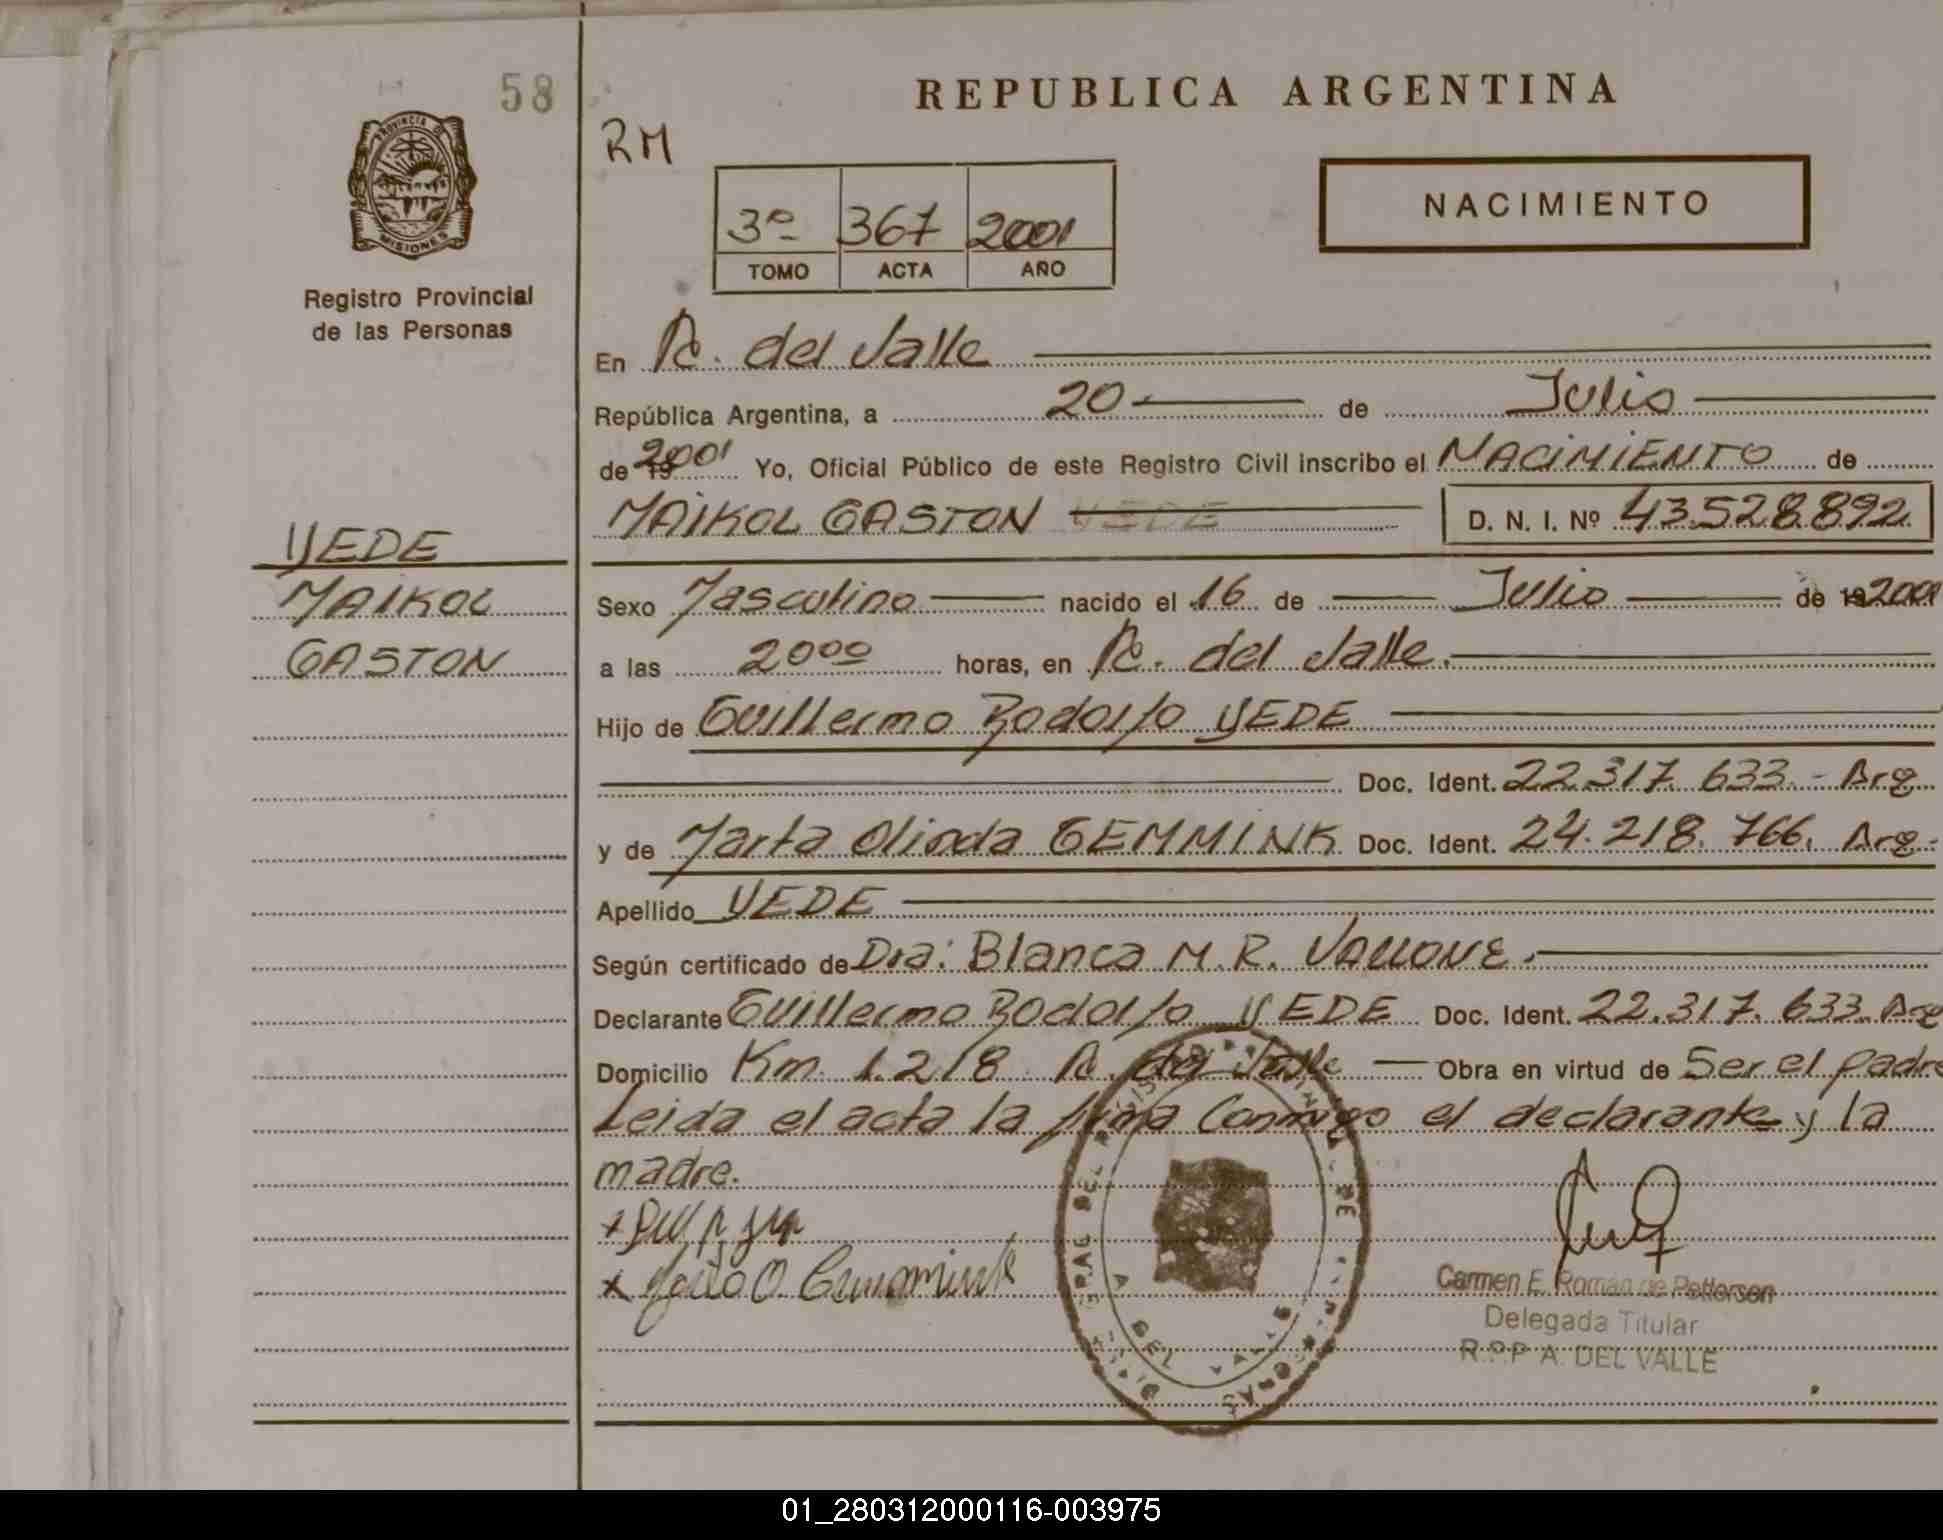 58
REPUBLICA ARGENTINA
RM
PROVINCIA DE
MISIONES
3º 367 2001
TOMO ACTA AÑO
NACIMIENTO
Registro Provincial
de las Personas
En A. del Valle
República Argentina, a 20 de Julio
de 2001 Yo, Oficial Público de este Registro Civil inscribo el NACIMIENTO de
MAIKOL GASTON D. N. I. Nº 43.528.892
YEDE
MAIKOL
GASTON
Sexo Masculino nacido el 16 de Julio de 19 2001
a las 20ºº horas, en A. del Valle.
Hijo de Guillermo Rodolfo YEDE
Doc. Ident. 22.317.633.- Arg
y de Marta Olinda GEMMINK Doc. Ident. 24.218.766. Arg-
Apellido YEDE
Según certificado de Dra: Blanca M. R. VALLONE.
Declarante Guillermo Rodolfo YEDE Doc. Ident. 22.317.633. Arg
Domicilio Km 1.218 A. del Valle Obra en virtud de Ser el padre
Leida el acta la firma Conmigo el declarante y la
madre.
Carmen E. Roman de Petterson
Delegada Titular
R.P.P A. DEL VALLE
01_280312000116-003975